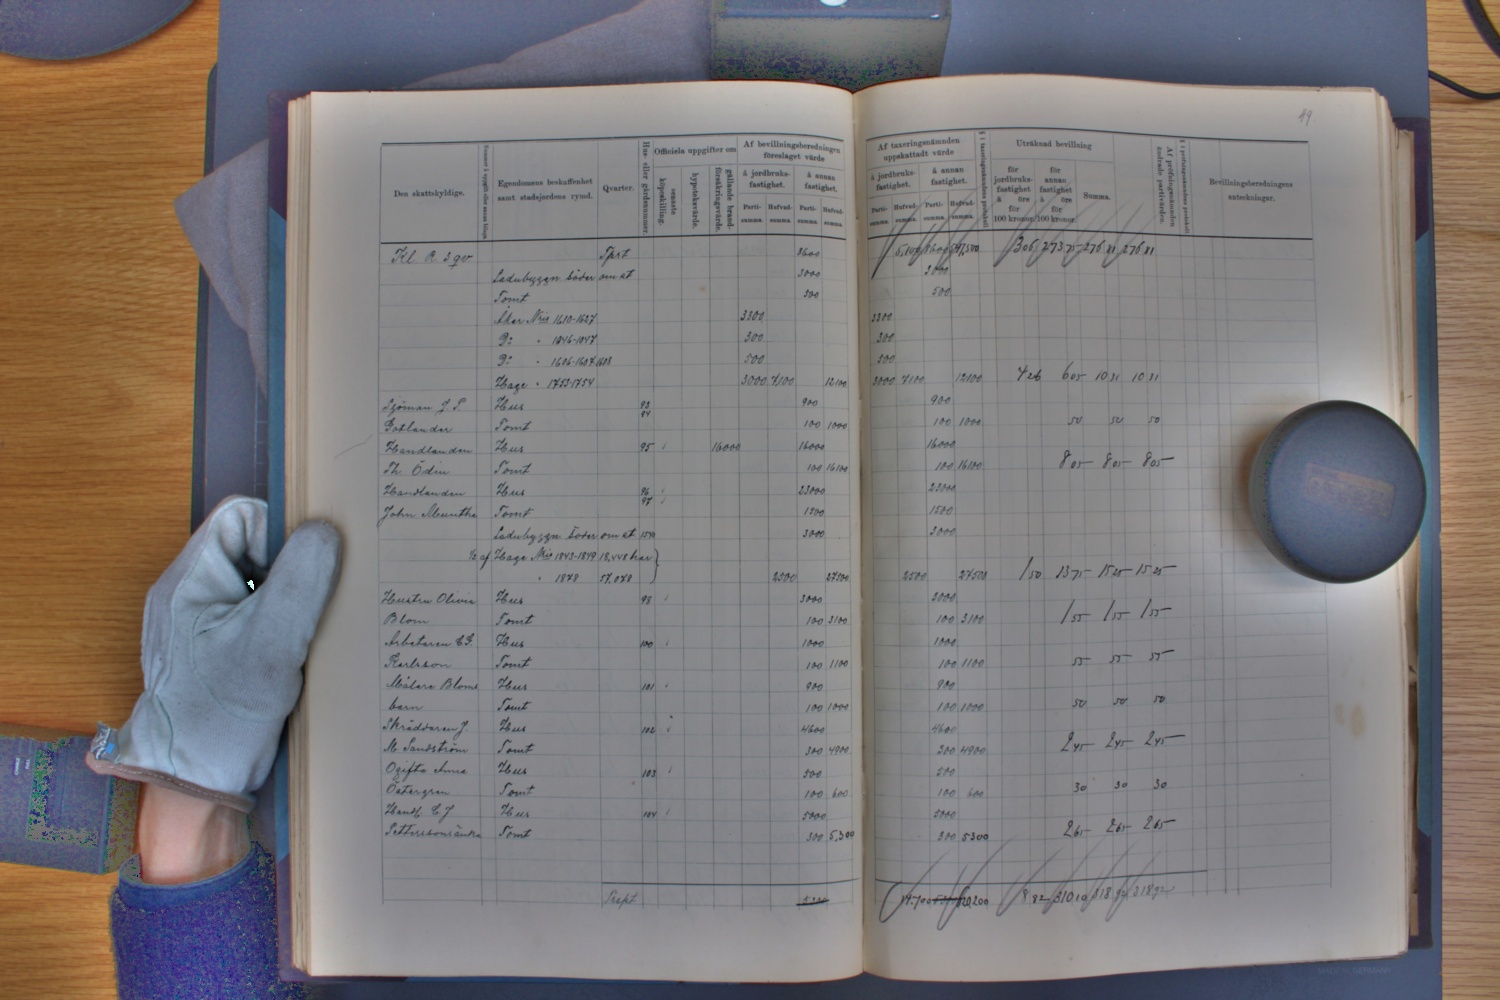 49
Den skattskyldige.
Egendomens beskaffenhet samt stadsjordens rymd.
Qvarter.
Hus- eller gårdsnummer.
Officiela uppgifter om
senaste köpeskilling.
hypoteksvärde.
gällande brandförsäkringsvärde.
Af bevillningsberedningen föreslaget värde
å jordbruksfastighet.
å annan fastighet.
Partisumma.
Hufvudsumma.
Partisumma.
Hufvudsumma.
Af taxeringsnämnden uppskattadt värde
å jordbruksfastighet.
å annan fastighet.
Partisumma.
Hufvudsumma.
Partisumma.
Hufvudsumma.
Uträknad bevillning
för jordbruksfastighet à öre för 100 kronor.
för annan fastighet à öre för 100 kronor.
Summa.
Af pröfningsnämnden ändrade partivärden.
Bevillningsberedningens anteckningar.
Kl. R 3 qv Tprt 8600
Ladubyggn Söder om åt 3000 3000
Tomt 500 500
Åker Nris 1610-1627 3300 3300
D:o " 1846-1847 300 300
D:o " 500 500
Hage " 1753-1754 3000 7100 12100 3000 7100 12100 4 26 6 05 10 31 10 31
Sjöman J P. Hus 93 94 900 900
Gotlander Tomt 100 1000 100 1000 50 50 50
Handlanden Hus 95 16000 16000 16000
Th. Ödin Tomt 100 16100 100 16100 8 05 8 05 8 05
Handlanden Hus 96 97 23000 23000
John Munthe Tomt 1500 1500
Ladubyggn Söder om åt 3000 3000
½ af Hage Nris 1843-1849 18,448 har
" 1878 57,078 2500 27500 2500 27500 1 50 13 75 15 25 15 25
Hustru Olivia Hus 98 3000 3000
Blom Tomt 100 3100 100 3100 1 55 1 55 1 55
Arbetaren Hus 100 1000 1000
Karlsson Tomt 100 1100 100 1100 55 55 55
Målare Bloms Hus 101 900 900
barn Tomt 100 1000 100 1000 50 50 50
Skräddaren J. Hus 102 4600 4600
M. Sandström Tomt 300 4900 300 4900 2 45 2 45 2 45
Ogifta Anna Hus 103 500 500
Östergren Tomt 100 600 100 600 30 30 30
Handl. C J Hus 104 5000 5000
Petterssons enka Tomt 300 5,300 300 5300 2 65 2 65 2 65
Trspt 120,200 8 82 310 10 318 92 318 92